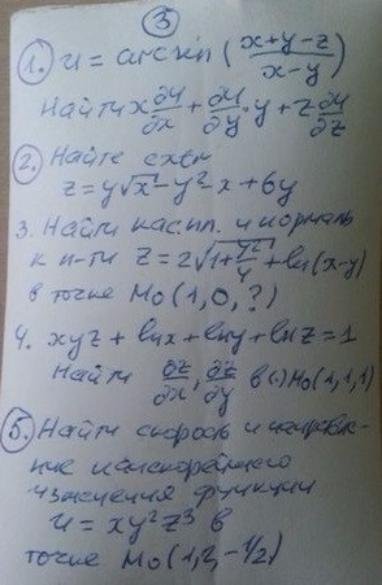 3
1. u = arcsin (x+y-z / x-y)
Найти x ∂u/∂x + ∂u/∂y · y + z ∂u/∂z
2. Найти extr
z = y√x - y² - x + 6y
3. Найти кас. пл. и нормаль
к п-ти z = 2√(1+y²/4) + ln(x-y)
в точке M₀(1,0,?)
4. xyz + lnx + lny + lnz = 1
Найти ∂z/∂x, ∂z/∂y в (·) M₀(1,1,1)
5. Найти скорость и направле-
ние наискорейшего
изменения функции
u = xy²z³ в
точке M₀(1,2,-1/2)